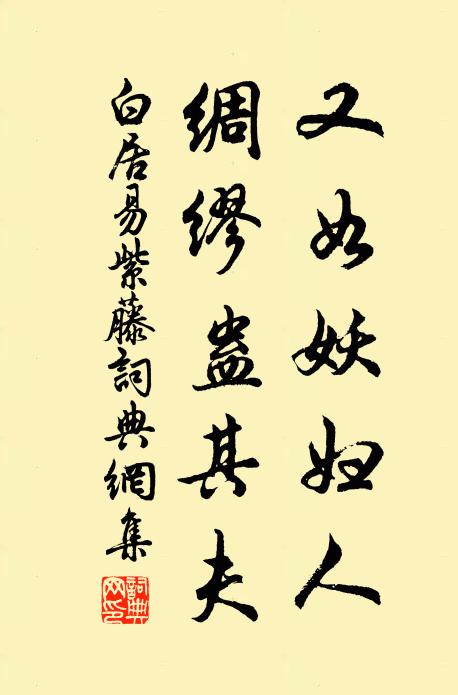 又如妖妇人
绸缪蛊其夫
白居易紫藤詞典網集
詞典网印